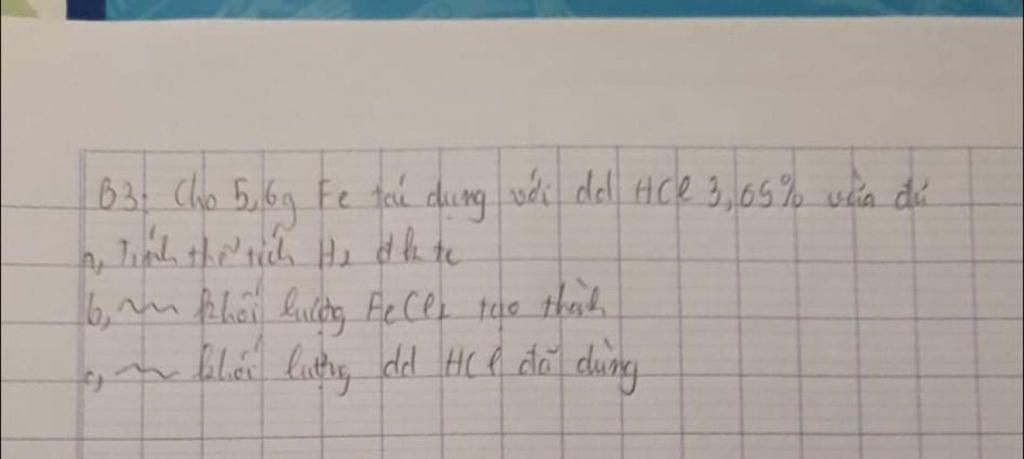 B3: Cho 5,6g Fe tác dụng với dd HCl 3,65% vừa đủ
a, Tính thể tích H2 đktc
b, ~ khối lượng FeCl2 tạo thành
c, ~ khối lượng dd HCl đã dùng